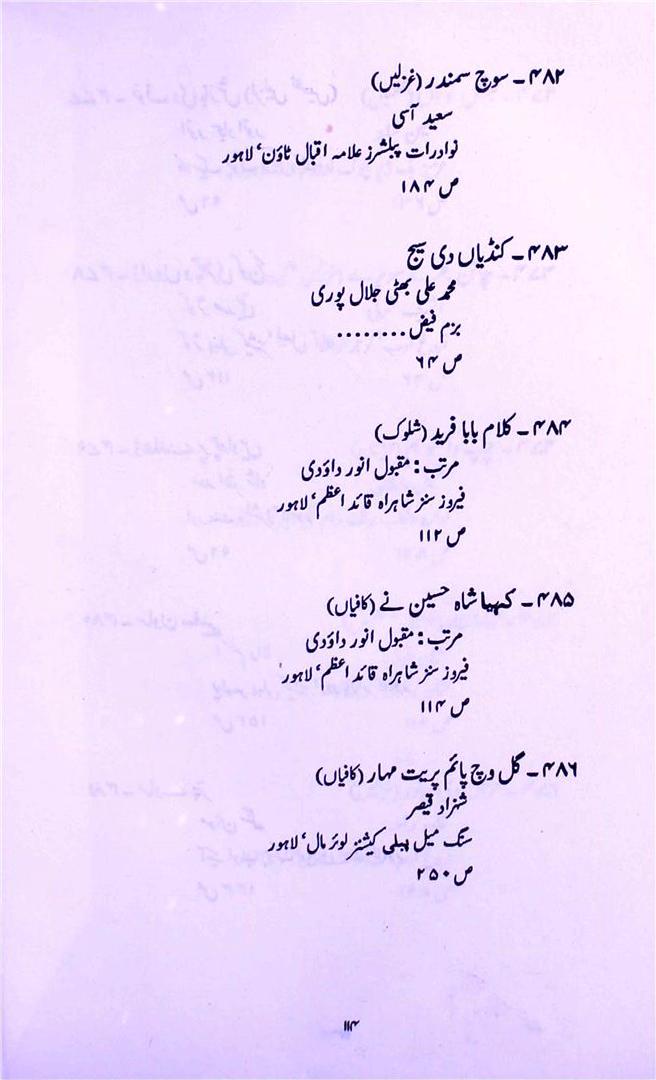 ۴۸۲ - سوچ سمندر (غزلیں)
سعید آسی
نوادرات پبلشرز علامہ اقبال ٹاؤن‘ لاہور
ص ۱۸۴
۴۸۳ - کنڈیاں دی سیج
محمد علی بھٹی جلال پوری
بزم فیض ........
ص ۶۴
۴۸۴ - کلام بابا فرید (شلوک)
مرتب : مقبول انور داؤدی
فیروز سنز شاہراہ قائد اعظم‘ لاہور
ص ۱۱۲
۴۸۵ - کہیا شاہ حسین نے (کافیاں)
مرتب : مقبول انور داؤدی
فیروز سنز شاہراہ قائد اعظم‘ لاہور
ص ۱۱۴
۴۸۶ - گل وچ پائم پریت مہار (کافیاں)
شہزاد قیصر
سنگ میل پبلی کیشنز لوئر مال‘ لاہور
ص ۲۵۰
۱۱۴